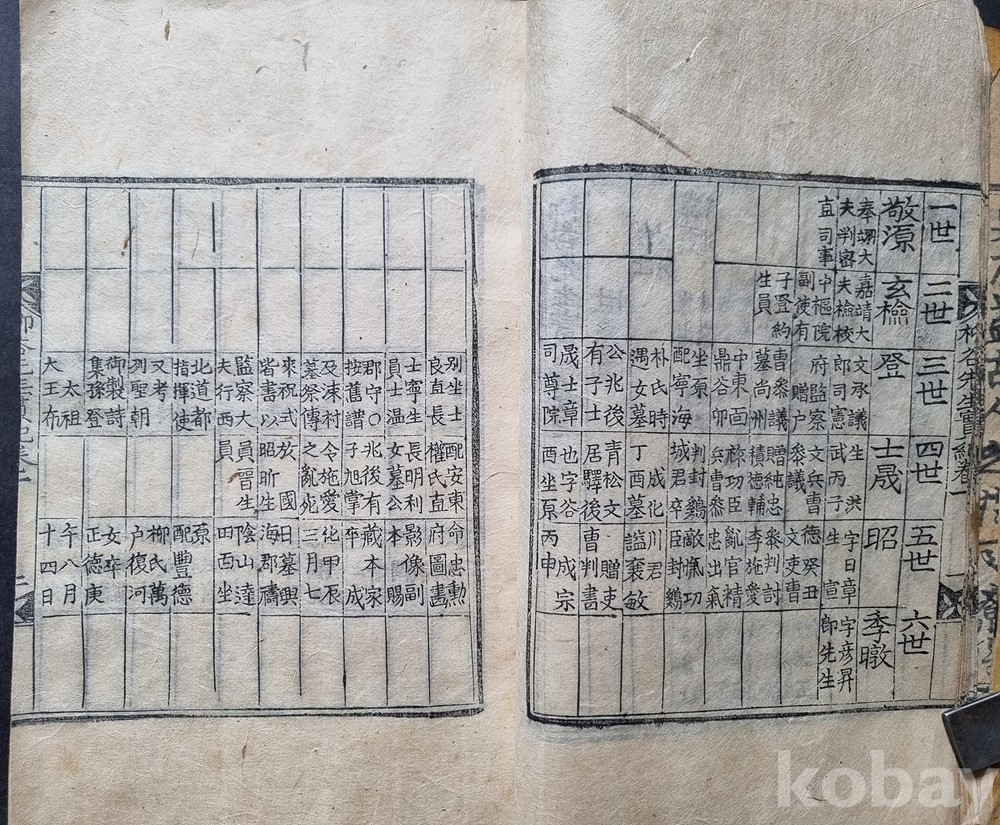 一世
敬源
奉翊大
夫判密
直司事
二世
玄檢
嘉靖大
夫檢校
中樞院
副使有
子登約
生員
三世
登
文承議
郎司憲
府監察
贈戶
曹參議
墓尚州
中東面
鼎谷卯
坐原
配寧海
朴氏時
遇女墓
公兆後
有子士
晟士章
司尊院
別坐士
良直長
士寧生
員士温
郡守〇
按舊譜
及涑村
墓祭傳
來祝式
皆書以
監察大
夫行西
北道都
指揮使
又考
列聖朝
御製詩
集孫登
太祖
大王布
四世
士晟
生洪
武丙子
文兵曹
參議
贈純忠
積德輔
祚功臣
兵曹參
判封鷄
城君卒
成化
丁酉墓
青松文
居驛後
也字谷
酉坐原
配安東
權氏直
長明利
女墓公
兆後有
子旭掌
令施愛
之亂死
於國
昭昕生
員晋生
員
五世
昭
字日章
生宣
德癸丑
文吏曹
參判討
李施愛
亂官精
忠出氣
敵愾功
臣封鷄
川君
謚襄敏
贈吏
曹判書
成宗
丙申
命忠勳
府圖畵
影像賜
副本
藏本家
卒成
化甲辰
三月七
日墓興
海郡禱
陰山達
四酉坐
原
配豐德
柳氏萬
户復河
女卒
正德庚
午八月
十四日
六世
季暾
字彦昇
卽先生
kobay